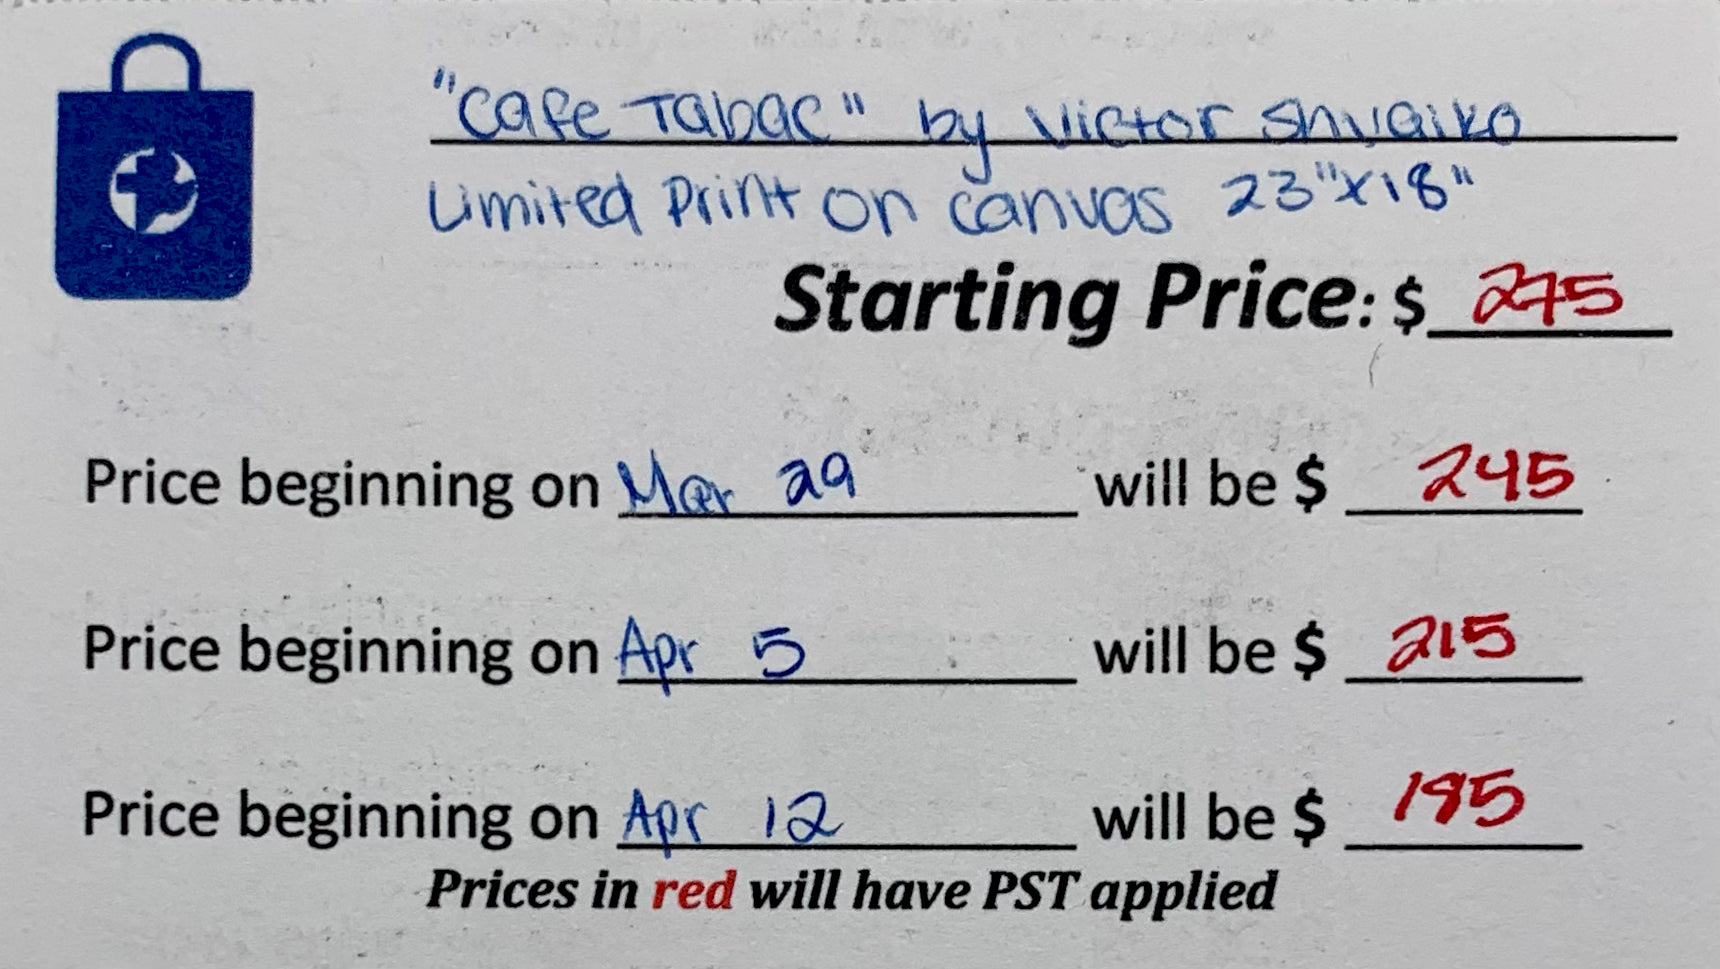 "Cafe Tabac" by Victor Shvaiko
Limited Print on canvas 23"x18"
Starting Price: $ 275
Price beginning on Mar 29 will be $ 245
Price beginning on Apr 5 will be $ 215
Price beginning on Apr 12 will be $ 185
Prices in red will have PST applied